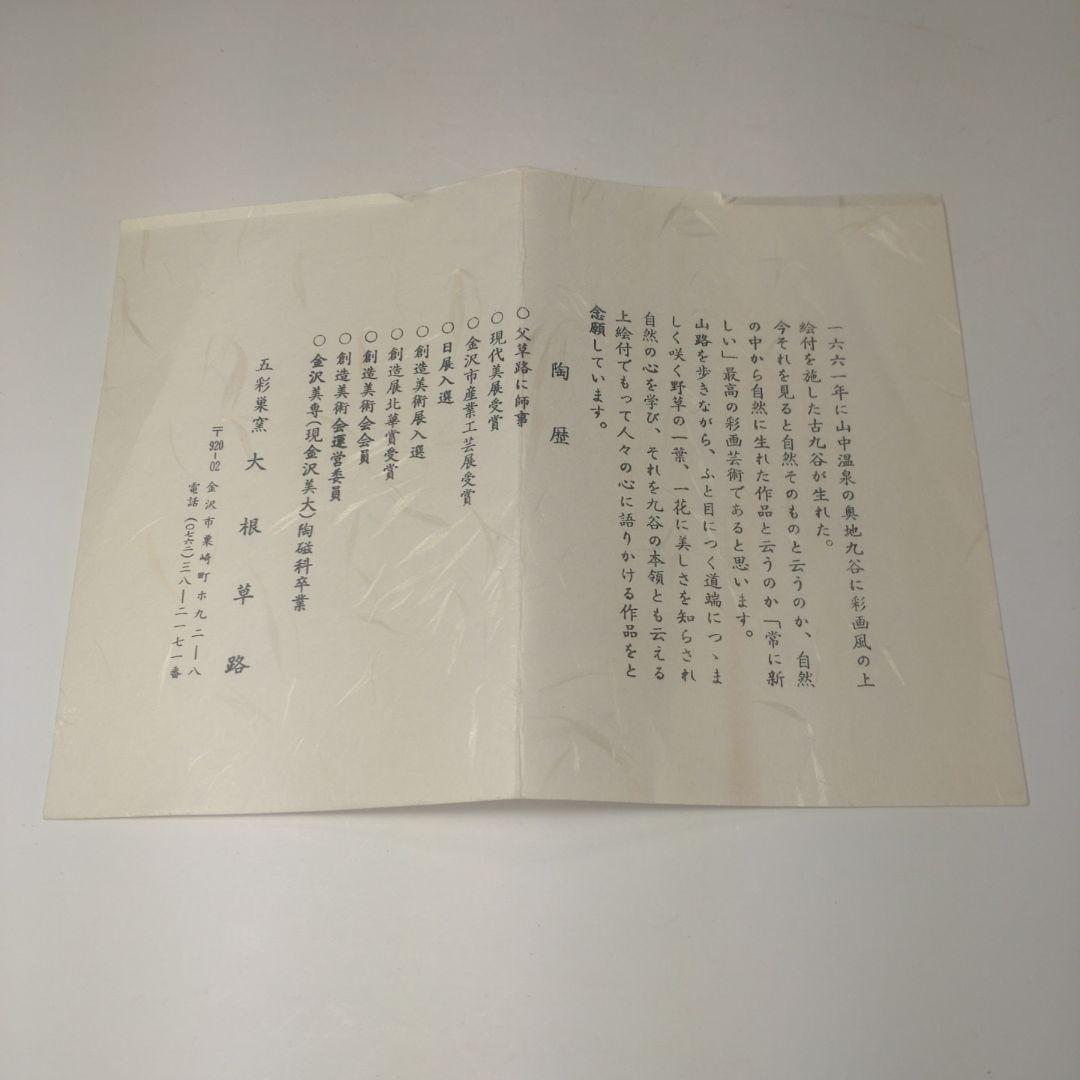 一六六一年に山中温泉の奥地九谷に彩画風の上
絵付を施した古九谷が生れた。
今それを見ると自然そのものと云うのか、自然
の中から自然に生れた作品と云うのか「常に新
しい」最高の彩画芸術であると思います。
山路を歩きながら、ふと目につく道端につゝま
しく咲く野草の一葉、一花に美しさを知らされ
自然の心を学び、それを九谷の本領とも云える
上絵付でもって人々の心に語りかける作品をと
念願しています。
陶歴
○父草路に師事
○現代美展受賞
○金沢市産業工芸展受賞
○日展入選
○創造美術展入選
○創造展北華賞受賞
○創造美術会会員
○創造美術会運営委員
○金沢美専(現金沢美大)陶磁科卒業
五彩巣窯 大根草路
〒920-02 金沢市粟崎町ホ九二―八
電話(〇七六二)三八―二一七一番